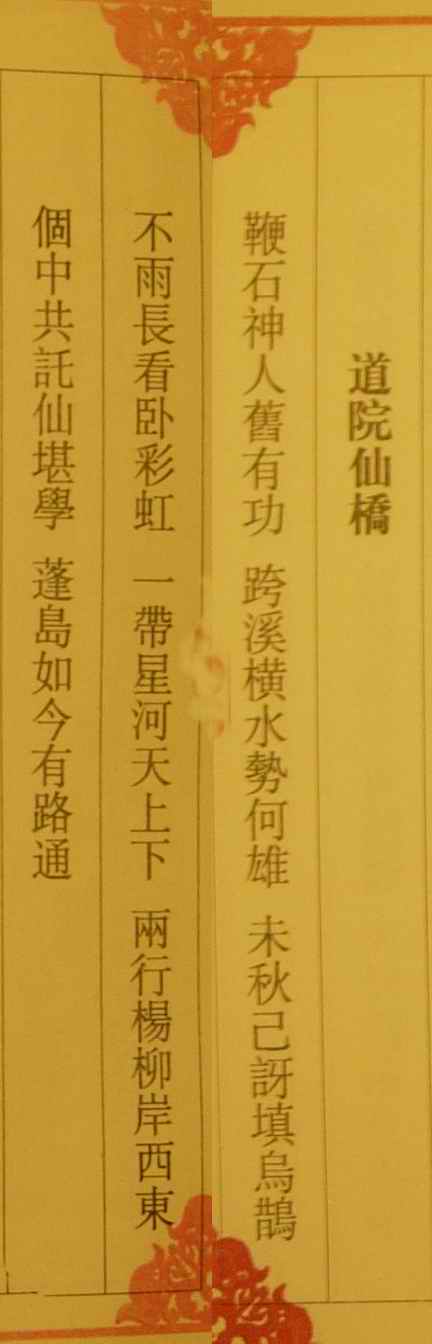 道院仙橋
鞭石神人舊有功 跨溪橫水勢何雄 未秋己訝填烏鵲
不雨長看卧彩虹 一帶星河天上下 兩行楊柳岸西東
個中共託仙堪學 蓬島如今有路通